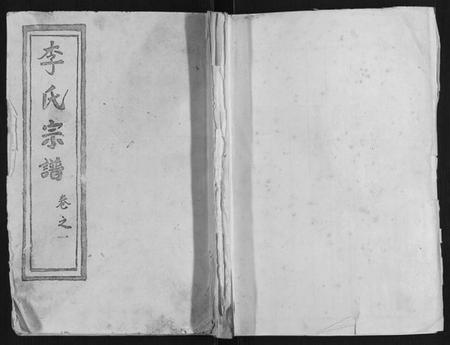 李氏宗譜 卷之一